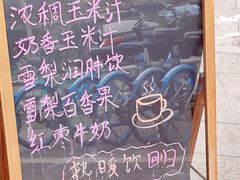 浓稠玉米汁
奶香玉米汁
雪梨润肺饮
雪梨百香果
红枣牛奶
热暖饮回归